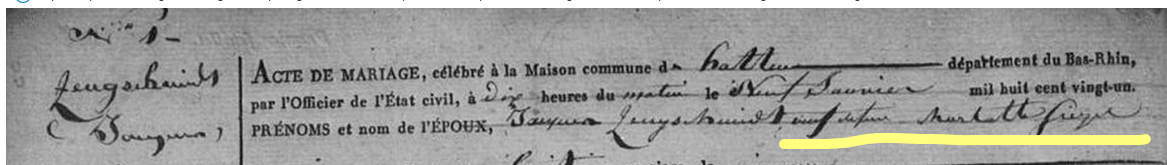 N° 1
Zeugschmidt
(Jacques)
ACTE DE MARIAGE, célébré à la Maison commune de hatten département du Bas-Rhin,
par l'Officier de l'État civil, à dix heures du matin le Neuf Janvier mil huit cent vingt-un.
PRÉNOMS et nom de l'ÉPOUX, Jacques Zeugschmidt veuf de